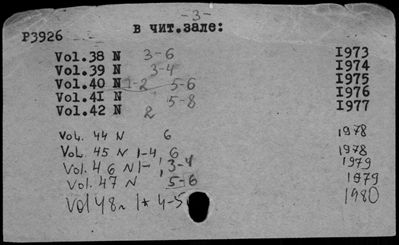 -3-
P3926 в чит.зале:
Vol.38 N 3-6 I973
Vol.39 N 3-4 I974
Vol.40 N 1-2 5-6 I975
Vol.4I N 5-8 I976
Vol.42 N 2 I977
Vol. 44 N 6 1978
Vol. 45 N 1-4, 6 1978
Vol. 46 N 1- 3-4 1979
Vol. 47 N 5-6 1979
Vol 48 1* 4-5 1980